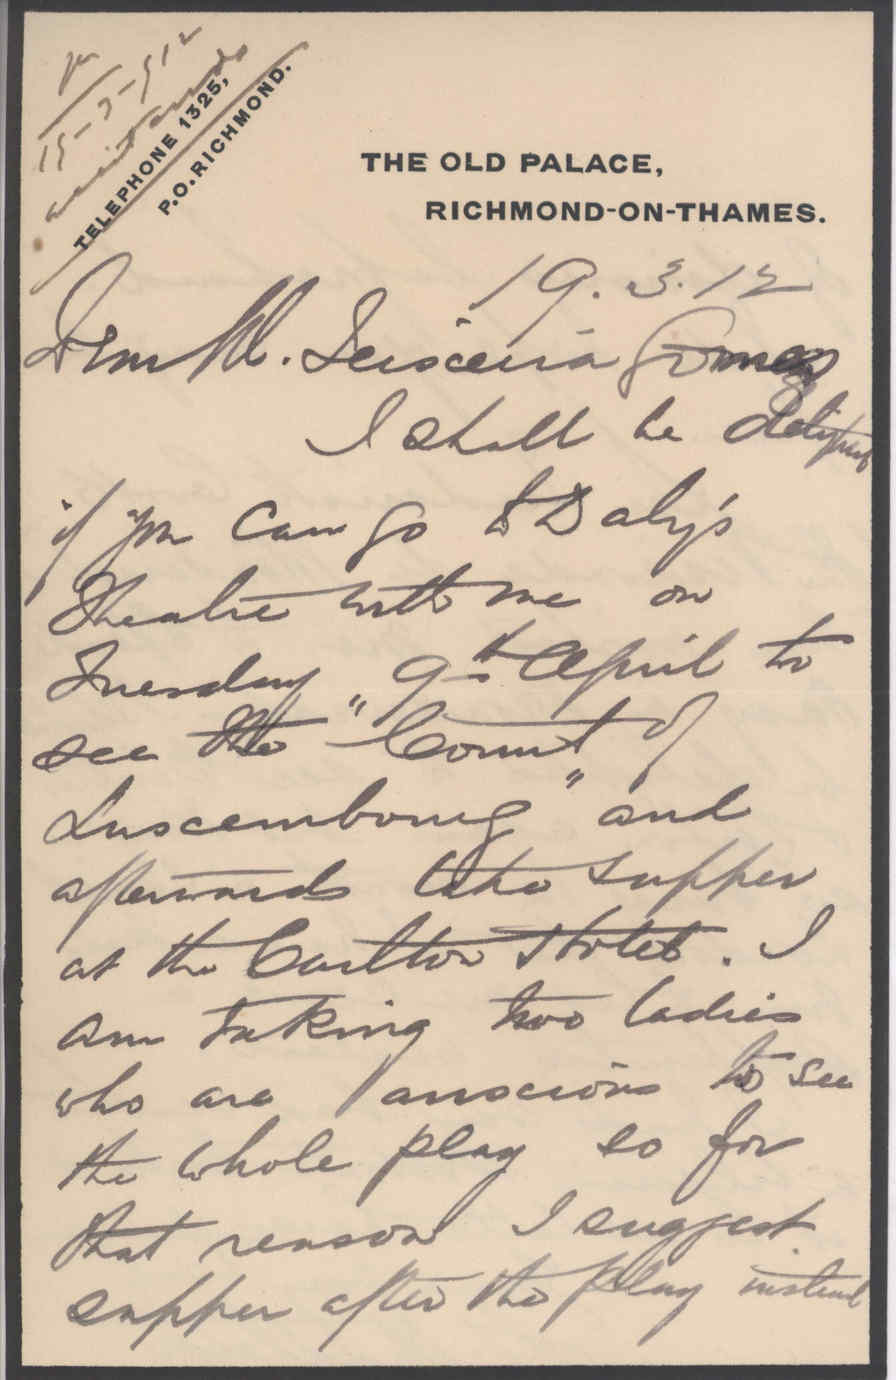 15-3-912
TELEPHONE 1325,
P.O. RICHMOND.
THE OLD PALACE,
RICHMOND-ON-THAMES.
19.3.12
Dear M. Teixeira Gomez
I shall be delighted
if you can go to Daly's
Theatre with me on
Tuesday 9th April to
see the "Count of
Luxembourg" and
afterwards take supper
at the Carlton Hotel. I
am taking two ladies
who are anxious to see
the whole play so for
that reason I suggest
supper after the play instead